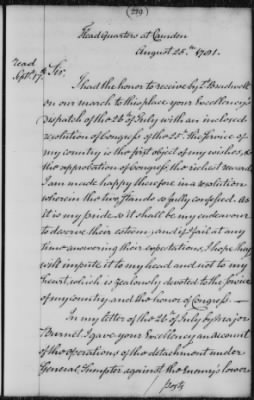 279
Head Quarters at Camden
August 25th 1781.
read
Septr 17.
Sir,
I had the honor to receive by Lt Bradwell
on our march to this place your Excellency's
dispatch of the 26 of July with an inclosed
resolution of Congress of the 25. The service of
my country is the first object of my wishes, &
the approbation of Congress the richest reward.
I am made happy therefore in a resolution
wherein the two stands so fully confessed. As
it is my pride so it shall be my endeavour
to deserve their esteem, and if I fail at any
time answering their expectations, I hope they
will impute it to my head and not to my
heart, which is zealously devoted to the service
of my country and the honor of Congress. —
In my letter of the 26 of July by Major
Burnet I gave your Excellency an account
of the operations of the detachment under
General Sumpter against the Enemy's lower
posts